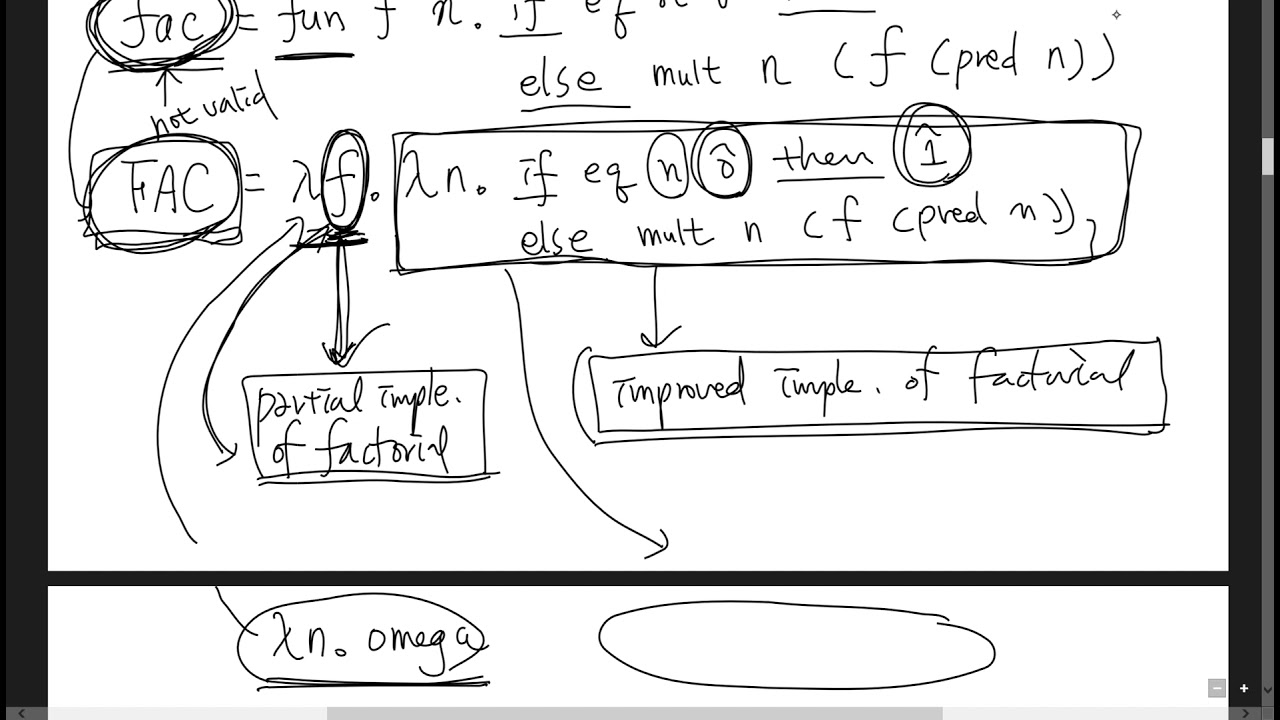 fac = fun f n. if eq
else mult n (f (pred n))
not valid
FAC = λf. λn. if eq n 0̂ then 1̂
else mult n (f (pred n))
partial imple.
of factorial
improved imple. of factorial
λn. omega